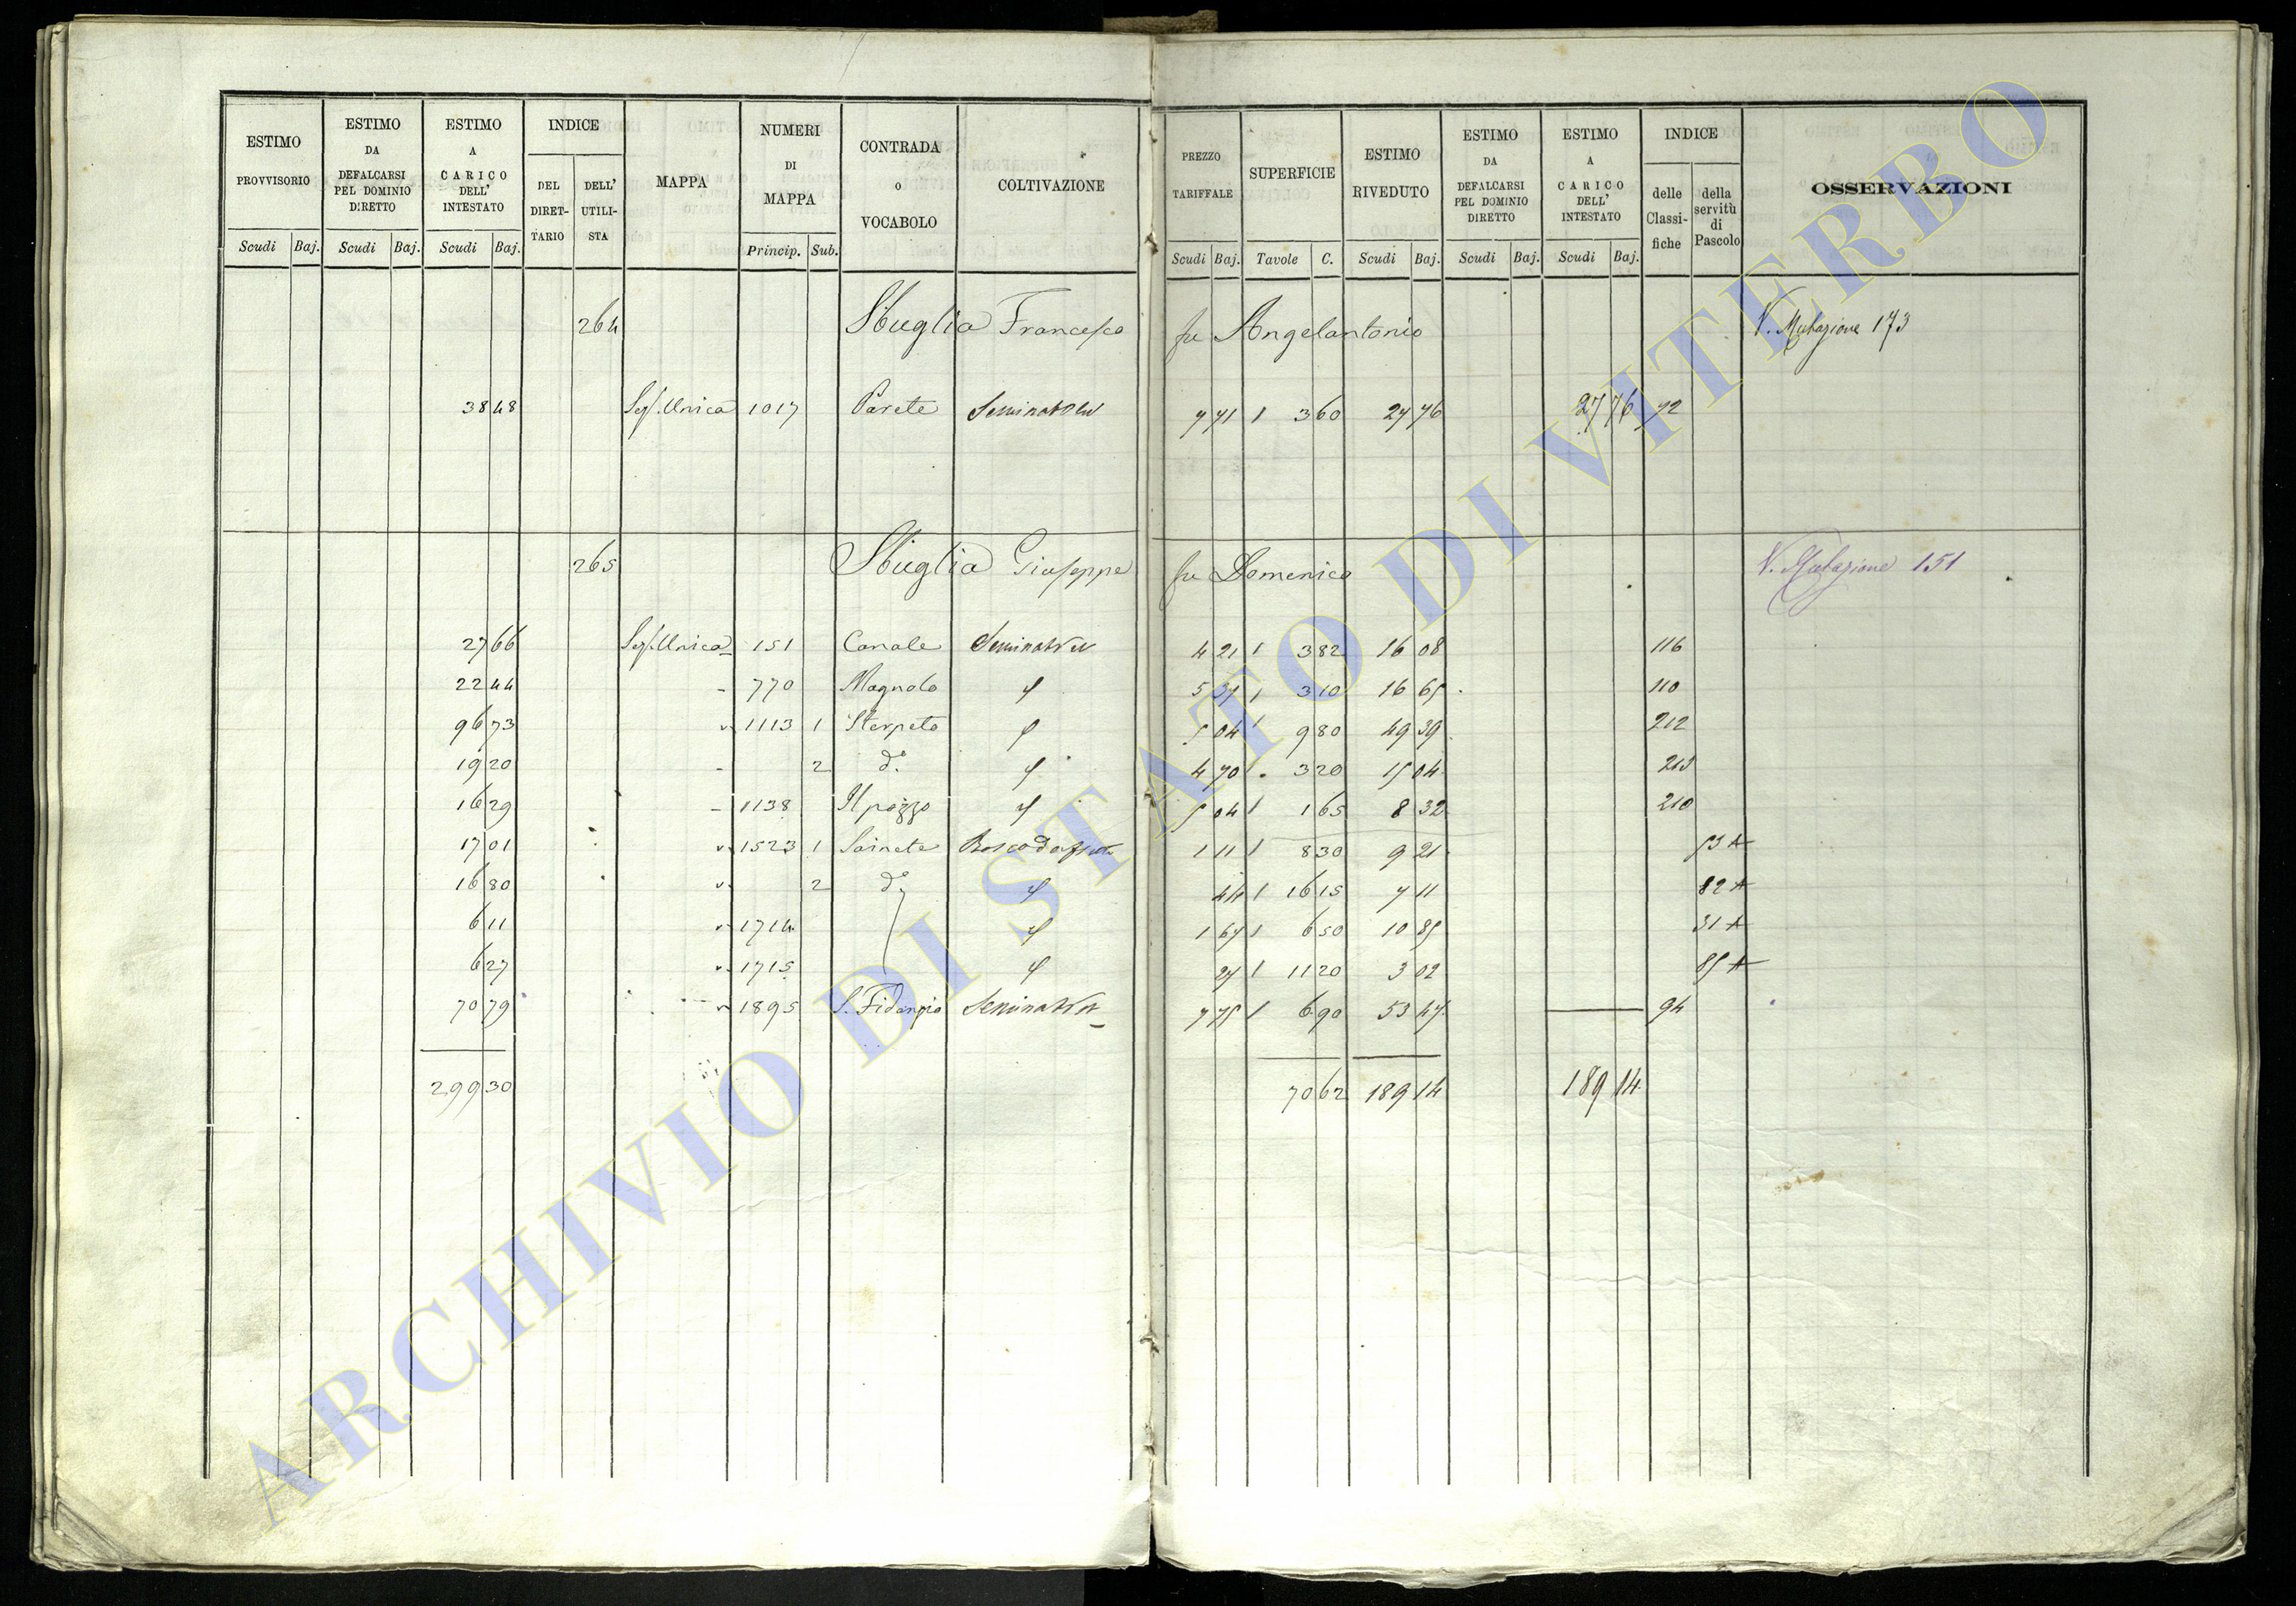 ESTIMO PROVVISORIO | ESTIMO DA DEFALCARSI PEL DOMINIO DIRETTO | ESTIMO A CARICO DELL' INTESTATO | INDICE | MAPPA | NUMERI DI MAPPA | CONTRADA O VOCABOLO | COLTIVAZIONE | PREZZO TARIFFALE | SUPERFICIE | ESTIMO RIVEDUTO | ESTIMO DA DEFALCARSI PEL DOMINIO DIRETTO | ESTIMO A CARICO DELL' INTESTATO | INDICE | OSSERVAZIONI
DEL DIRETTARIO | DELL' UTILISTA | delle Classifiche | della servitù di Pascolo
Scudi | Baj. | Scudi | Baj. | Scudi | Baj. | Princip. | Sub. | Scudi | Baj. | Tavole | C. | Scudi | Baj. | Scudi | Baj. | Scudi | Baj.
264 Sbuglia Francesco fu Angelantonio V. Mutazione 173
38 48 Sez. Unica 1017 Parete Seminativo 7 71 1 3 60 27 76 27 76 72
265 Sbuglia Giuseppe fu Domenico V. Mutazione 151
27 66 Sez. Unica 151 Canale Seminativo 4 21 1 3 82 16 08 116
22 44 - 770 Magnalo 5 37 1 3 10 16 65 110
96 73 1113 1 Sterpeto 5 04 1 9 80 49 39 212
19 20 - 2 d.° 4 70 . 3 20 15 04 213
16 29 - 1138 Il pozzo 5 04 1 1 65 8 32 210
17 01 1523 1 Bosco da frutto 1 11 1 8 30 9 21 53 A
16 80 2 d.° 44 1 16 15 7 11 82 A
6 11 1714 1 67 1 6 50 10 85 31 A
6 27 1715 27 1 11 20 3 02 85 A
70 79 1895 S. Fidanzio Seminativo 7 75 1 6 90 53 47 94
299 30 70 62 189 14 189 14
ARCHIVIO DI STATO DI VITERBO